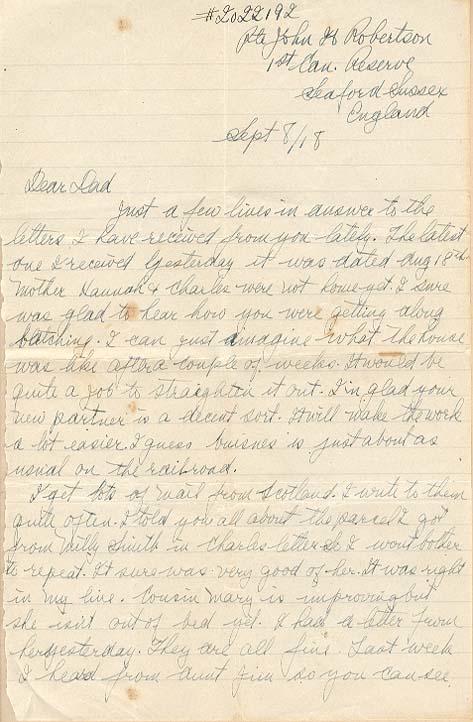 #2022192
Pte John H Robertson
1st Can. Reserve
Seaford Sussex
England
Sept 8/18
Dear Dad
Just a few lines in answer to the
letters I have received from you lately. The latest
one I received Yesterday it was dated Aug 18th.
Mother Hannah & Charles were not home yet. I sure
was glad to hear how you were getting along
batching. I can just imagine what the house
was like after a couple of weeks. It would be
quite a job to straighten it out. I'm glad your
new partner is a decent sort. It will make the work
a lot easier. I guess buisnes is just about as
usual on the railroad.
I get lots of mail from Scotland. I write to them
quite often. I told you all about the parcel I got
from Milly Smith in Charles letter so I wont bother
to repeat. It sure was very good of her. It was right
in my line. Cousin Mary is improving but
she isn't out of bed yet. I had a letter from
her yesterday. They are all fine. Last week
I heard from Aunt Jim so you can see